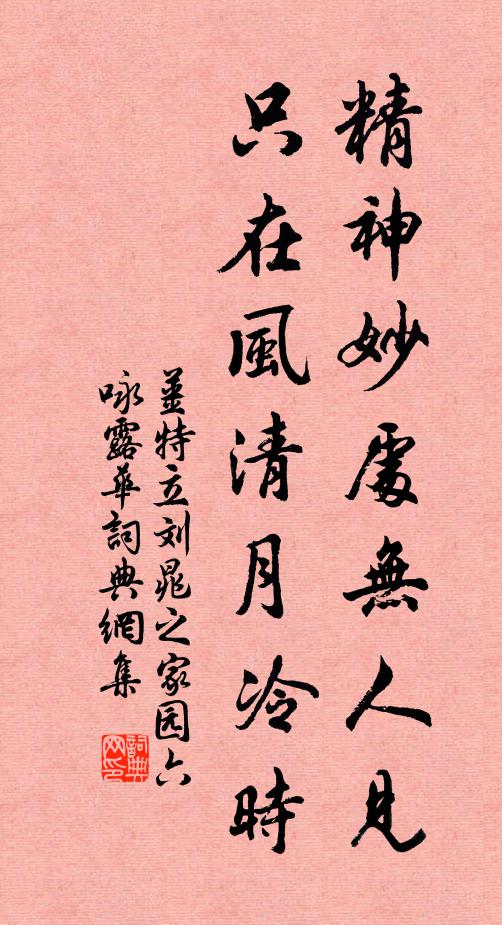 精神妙處無人見
只在風清月冷時
薑特立刘晁之家园六
咏露華詞典網集
詞典
网印